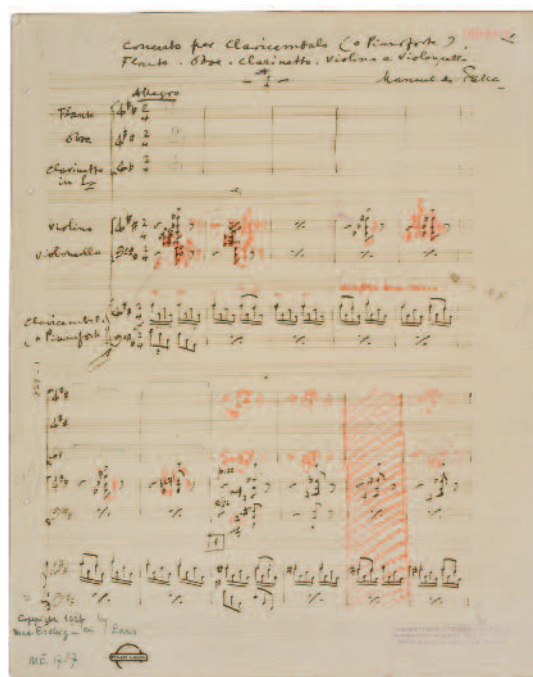 Concerto per Clavicembalo (o Pianoforte).
Flauto . Oboe . Clarinetto . Violino e Violoncello
- I -
Manuel de Falla
Allegro
Flauto
Oboe
Clarinetto
in
Violino
Violoncello
Clavicembalo
(o Pianoforte)
1
Copyright 1926 by
Max Eschig Paris
ME 1727